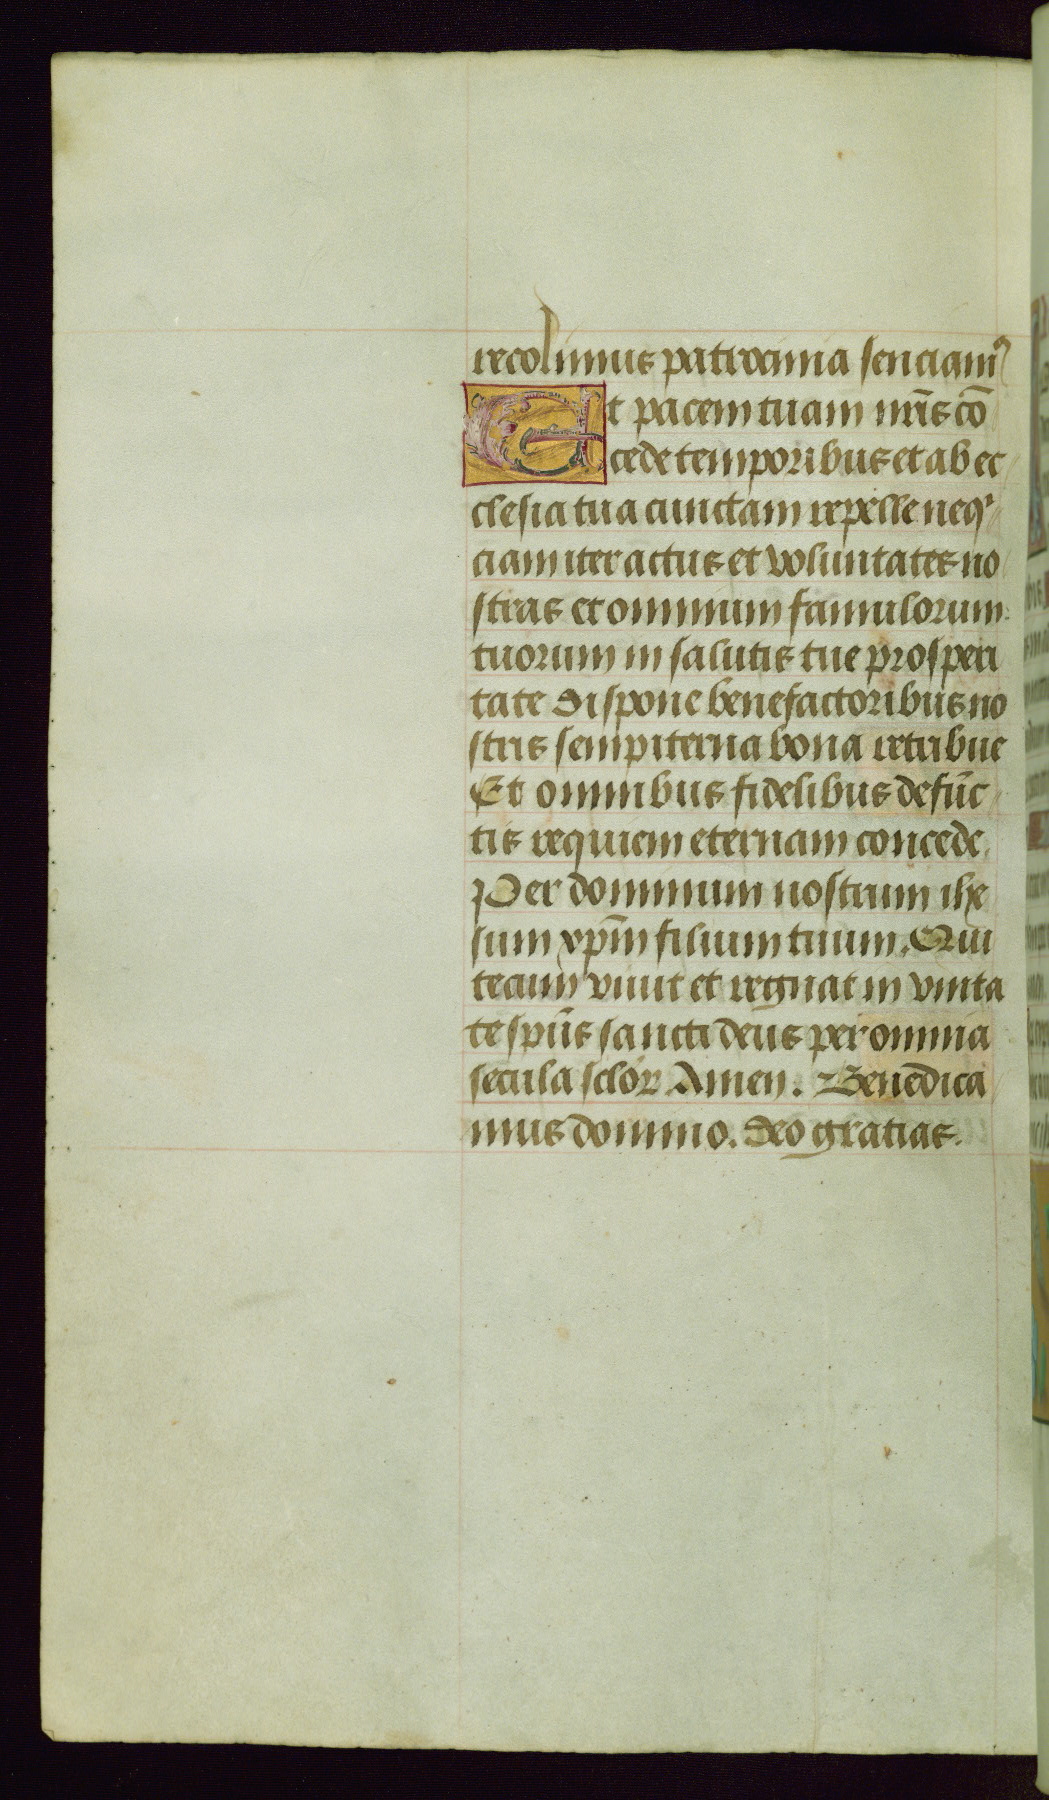 recolimus patrocinia senciamꝰ
Et pacem tuam nr̄is cō
cede temporibus et ab ec
clesia tua cunctam repelle neqͥ
ciam iter actus et voluntates no
stras et omnium famulorum
tuorum in salutis tue prosperi
tate dispone benefactoribus no
stris sempiterna bona retribue
Et omnibus fidelibus defūc
tis requiem eternam concede.
Per dominum nostrum ihe
sum xp̄m filium tuum. Qui
tecum viuit et regnat in vnita
te spūs sancti deus per omnia
secula sclōꝝ Amen. Benedica
mus domino. Deo gratias.